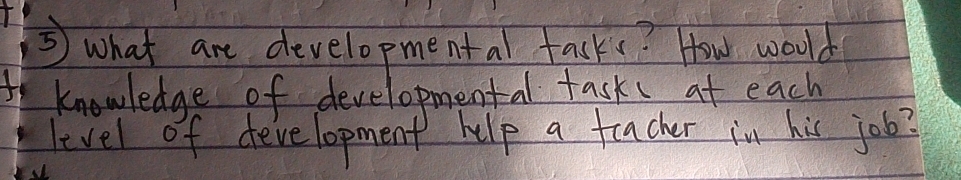 5) What are developmental tasks? How would
knowledge of developmental tasks at each
level of development help a teacher in his job?